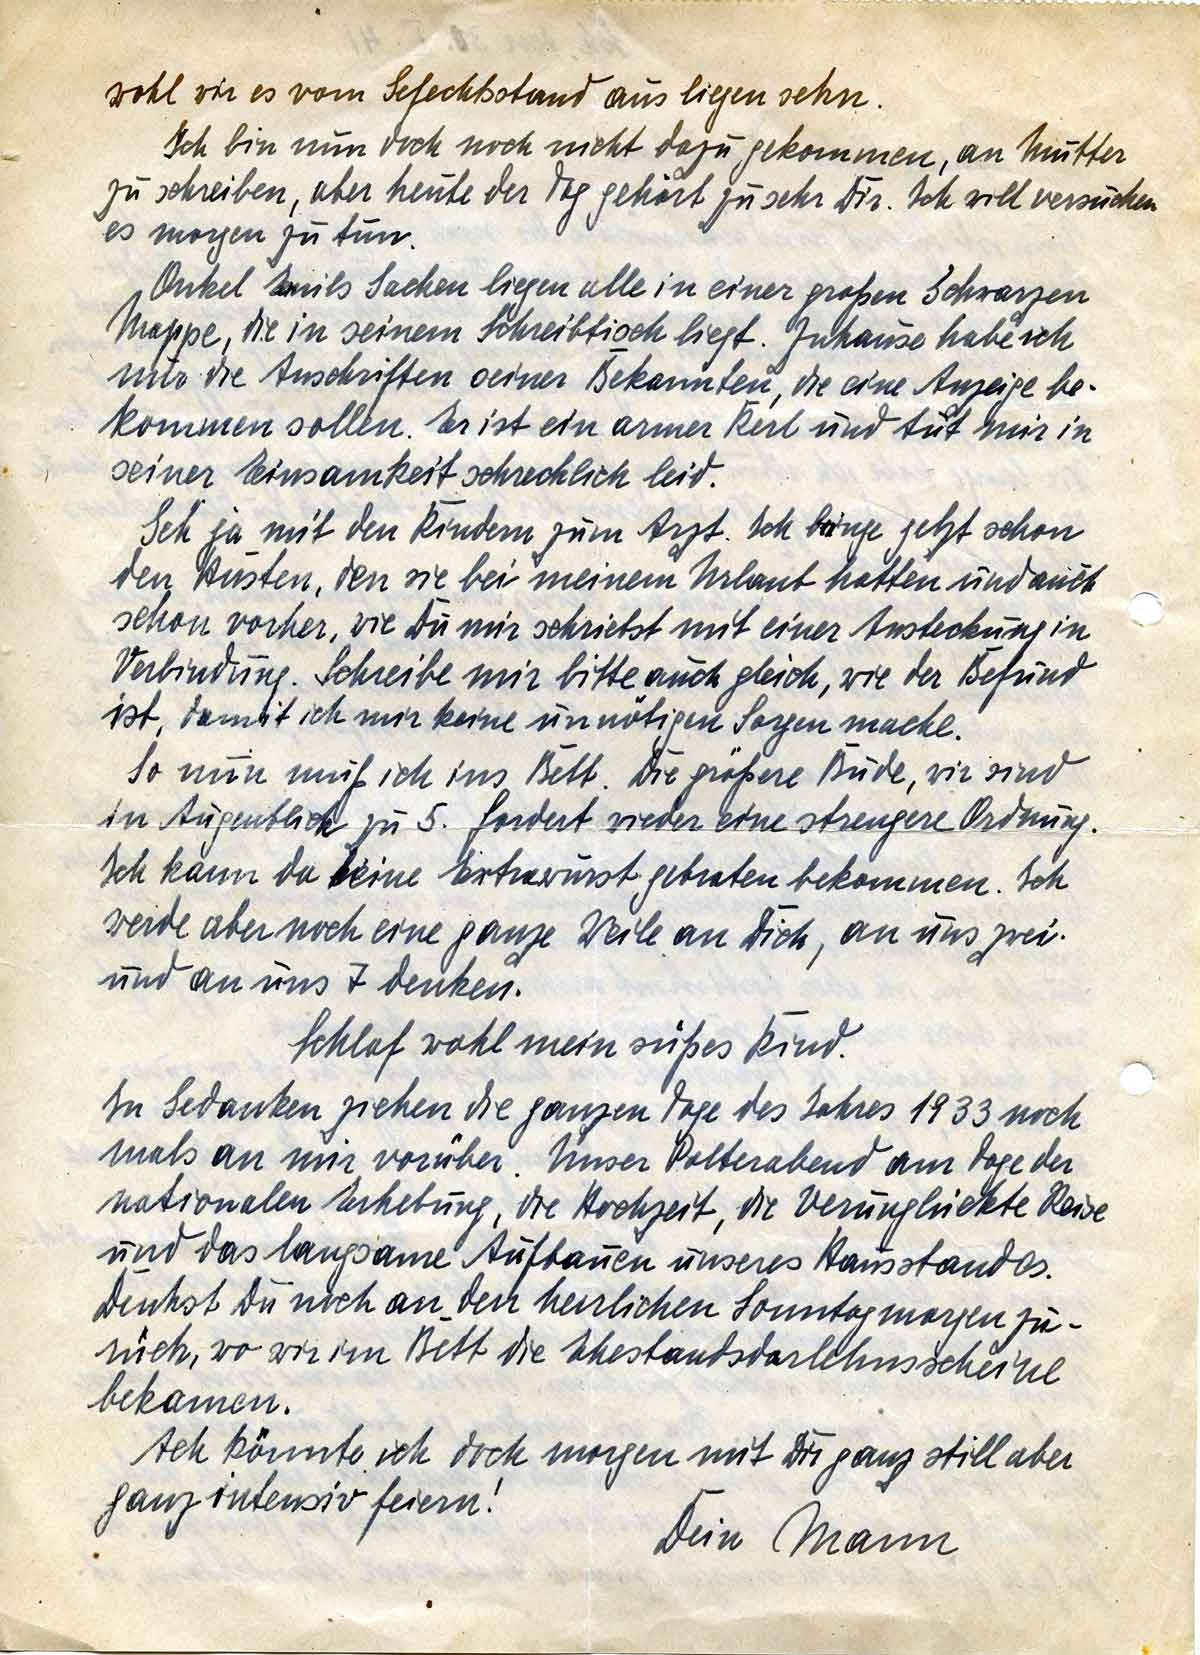 wohl wir es vom Gefechtsstand aus liegen sehn.
Ich bin nun doch noch nicht dazu gekommen, an Mutter
zu schreiben, aber heute der Tag gehört zu sehr Dir. Ich will versuchen
es morgen zu tun.
Onkel Emils Sachen liegen alle in einer großen Schwarzen
Mappe, die in seinem Schreibtisch liegt. Zuhause habe ich
nur die Anschriften seiner Bekannten, die eine Anzeige be-
kommen sollen. Er ist ein armer Kerl und tut mir in
seiner Einsamkeit schrecklich leid.
Geh ja mit den Kindern zum Arzt. Ich bringe jetzt schon
den Husten, den sie bei meinem Urlaub hatten und auch
schon vorher, wie Du mir schriebst mit einer Ansteckung in
Verbindung. Schreibe mir bitte auch gleich, wie der Befund
ist, damit ich mir keine unnötigen Sorgen mache.
So nun muß ich ins Bett. Die größere Bude, wir sind
im Augenblick zu 5. fordert wieder eine strengere Ordnung.
Ich kann da keine Extrawurst gebraten bekommen. Ich
werde aber noch eine ganze Weile an Dich, an uns zwei
und an uns 7 denken.
Schlaf wohl mein süßes Kind.
In Gedanken ziehen die ganzen Tage des Jahres 1933 noch
mals an mir vorüber. Unser Polterabend am Tage der
nationalen Erhebung, die Hochzeit, die Verunglückte Reise
und das langsame Aufbauen unseres Hausstandes.
Denkst Du noch an den herrlichen Sonntagmorgen zu-
rück, wo wir im Bett die Ehestandsdarlehnsscheine
bekamen.
Ach könnte ich doch morgen mit Dir ganz still aber
ganz intensiv feiern!
Dein Mann